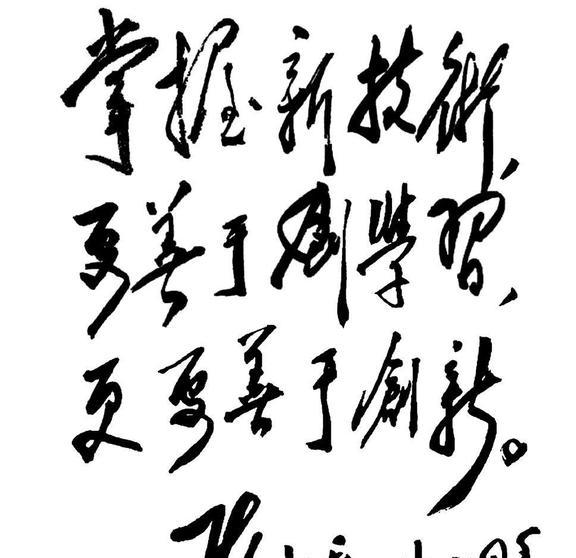 掌握新技術、
要善于學習、
更要善于創新。